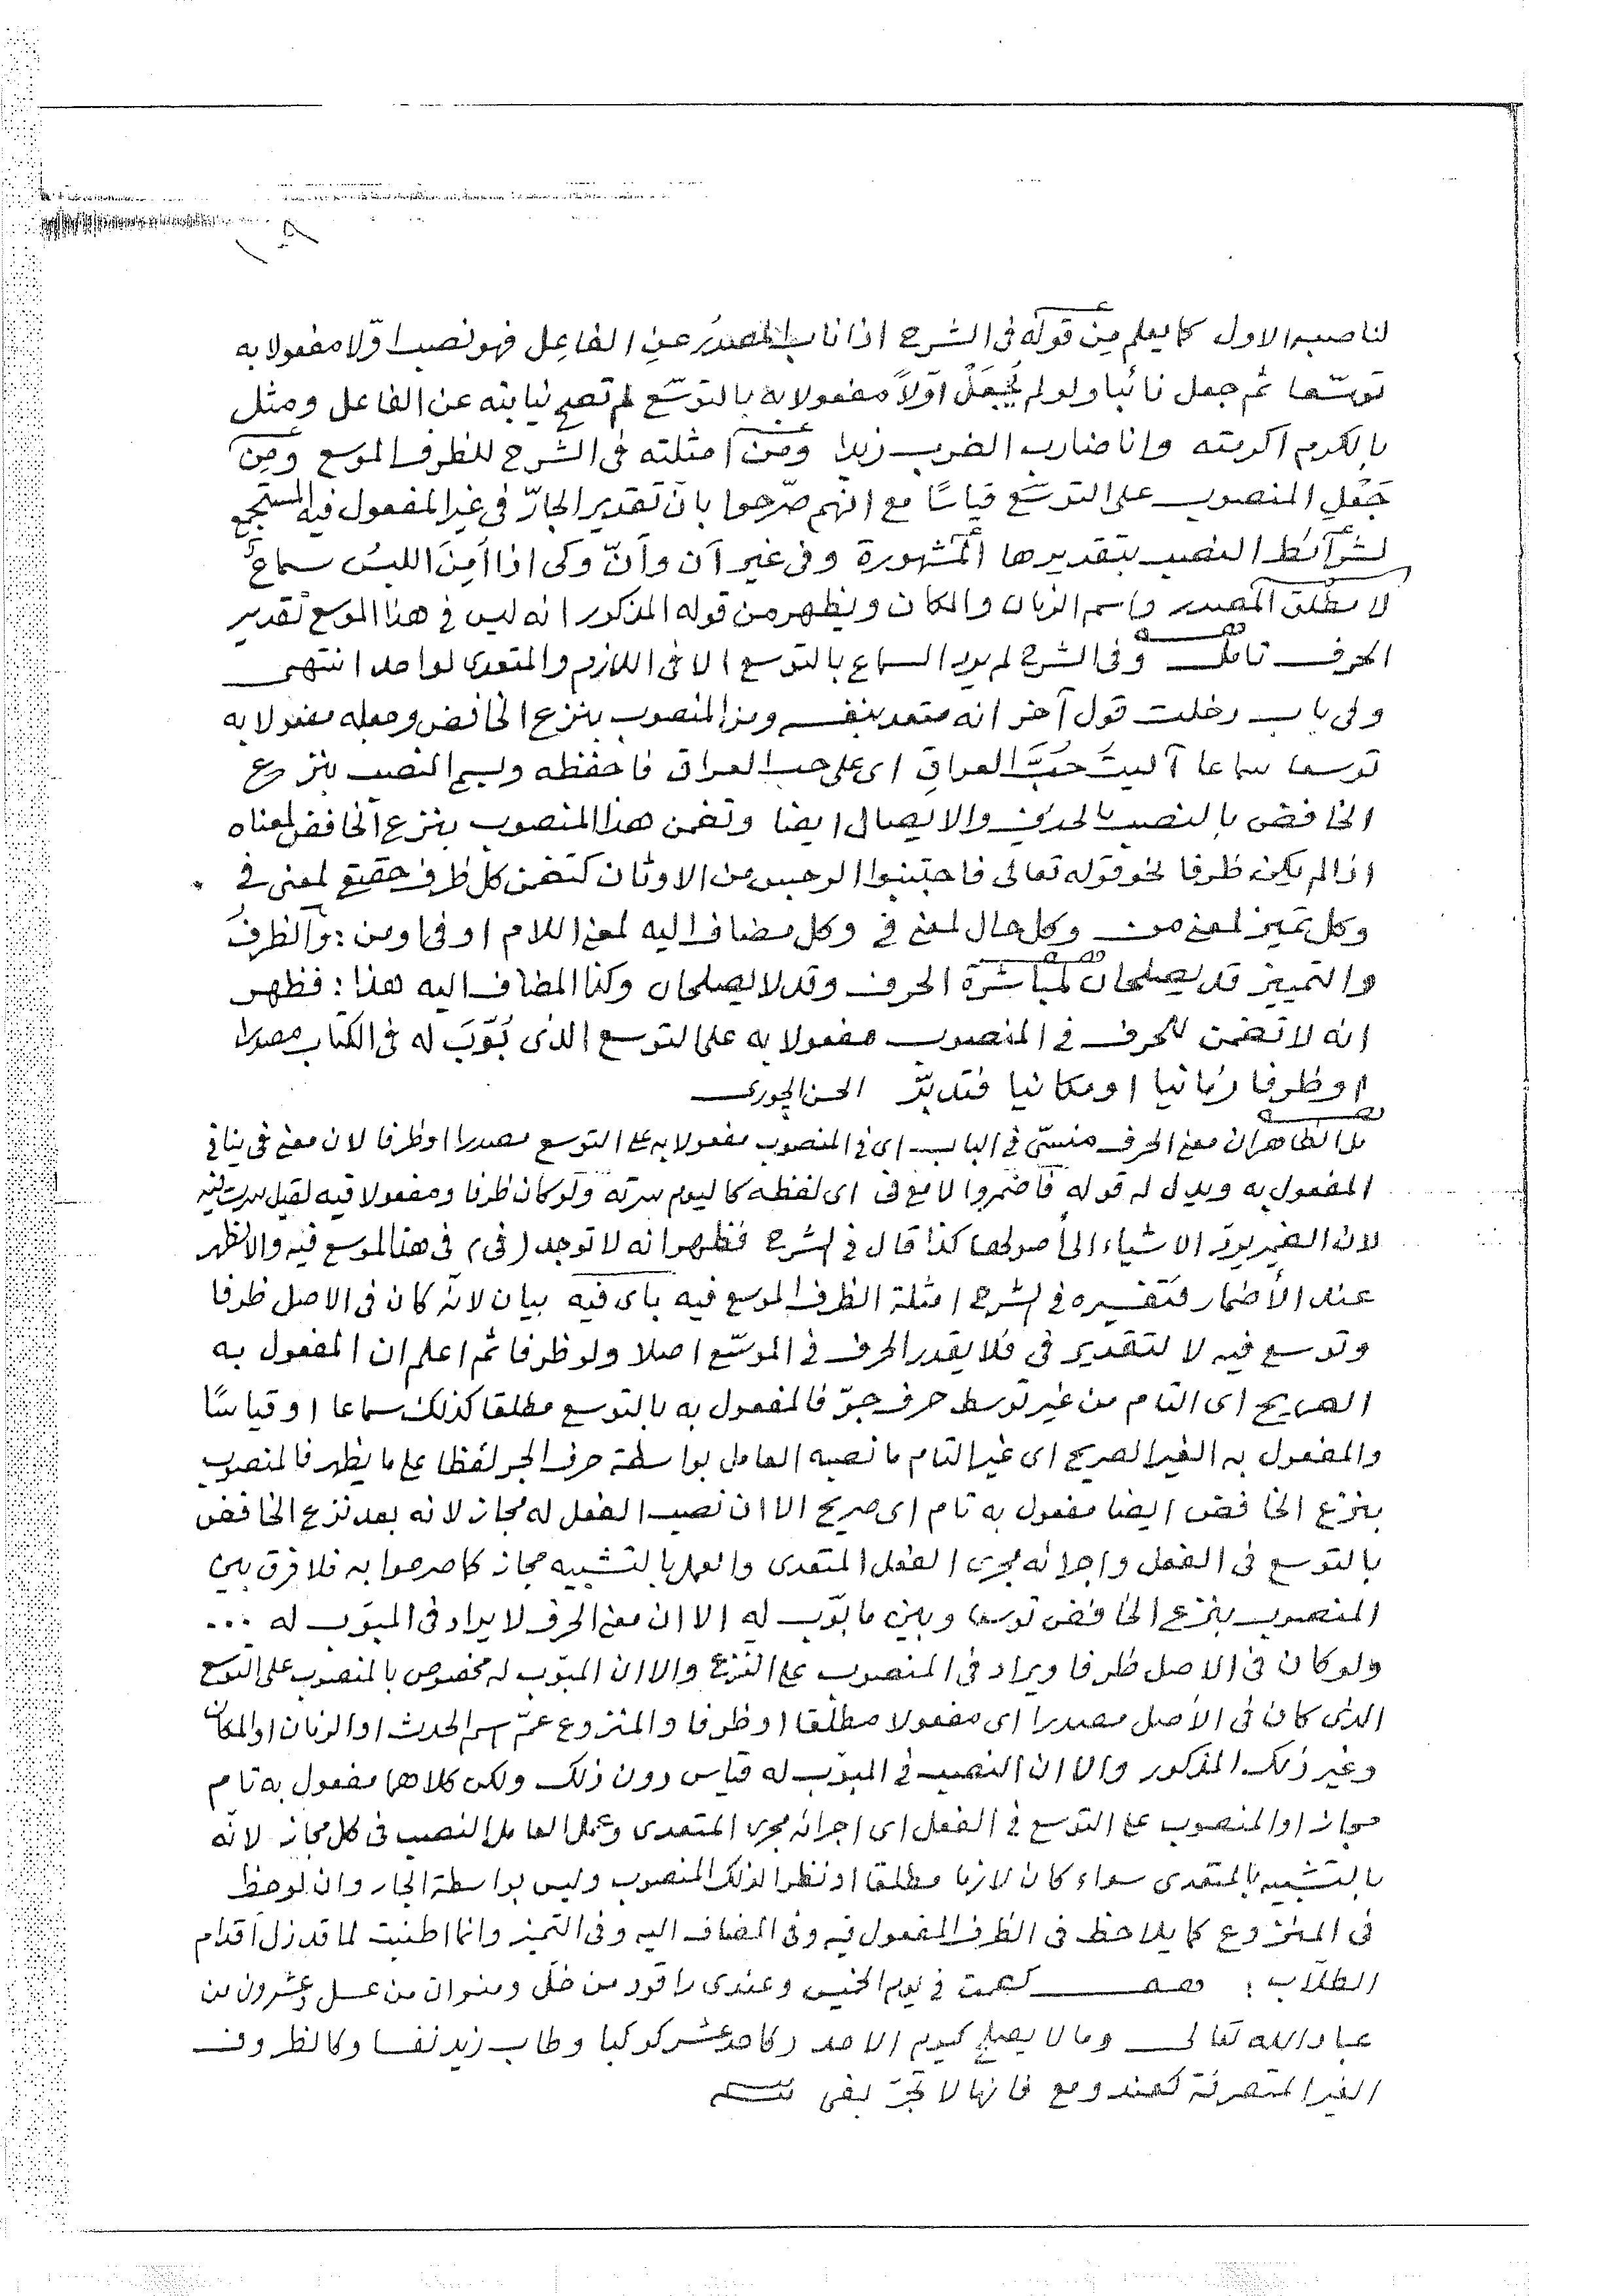 ١٩
لناصبه الاول كما يعلم من قوله فى الشرح اذا ناب المصدر عن الفاعل فهو نصب اوّلا مفعولا به
توسّعا ثم جعل نائبا ولو لم يُجعَل اوّلاً مفعولا به بالتوسّع لم تصح نيابته عن الفاعل ومثل
بالكرم اكرمته وانا ضارب الضرب زيدا ومن امثلته فى الشرح للظرف الموسع ومِن
جَعْلِ المنصوب على التوسّع قياسًا مع انّهم صرّحوا بان تقدير الجارّ فى غير المفعول فيه المستجمع
لشرآئط النصب بتقديرها المشهورة وفى غير اَن واَنّ وكى اذا اُمِنَ اللبسُ سماع
لا مطلق المصدر واسم الزمان والمكان ويظهر من قوله المذكور انه ليس فى هذا الموسع تقدير
الحرف تامل وفى الشرح لم يرد السماع بالتوسع الا فى اللازم والمتعدى لواحد انتهى
وفى باب دخلت قول آخر انه متعد بنفسه ومن المنصوب بنزع الخافض وجعله مفعولا به
توسعا سماعا آليتَ حَبَّ العراقِ اى على حب العراق فاحفظه ويسمى النصب بنزع
الخافض بالنصب بالحذف والايصال ايضا وتضمن هذا المنصوب بنزع الخافض لمعناه
اذا لم يكن ظرفا نحو قوله تعالى فاجتنبوا الرجس من الاوثان كتضمن كل ظرف حقيقى لمعنى فى
وكل تميز لمعنى من وكل حال لمعنى فى وكل مضاف اليه لمعنى اللام او فى او من : والظرفُ
والتمييز قد يصلحان لمباشرة الحرف وقد لا يصلحان وكذا المضاف اليه هذا : فظهر
انه لا تضمن للحرف فى المنصوب مفعولا به على التوسع الذى بُوّبَ له فى الكتاب مصدرا
او ظرفا زمانيا او مكانيا فتدبّر الحسن الچورى
بل الظاهر ان معنى الحرف منسىّ فى الباب اى فى المنصوب مفعولا به على التوسع مصدرا او ظرفا لان معنى فى ينافى
المفعول به ويدل له قوله فأضمروا لا مع فى اى لفظه كاليوم سرته ولو كان ظرفا ومفعولا فيه لقيل سرت فيه
لان الضمير يردّ الاشياء الى أصولها كذا قال فى الشرح فظهر انه لا توجد (فى) فى هذا الموسع فيه والا لظهر
عند الأضمار فتفسيره فى الشرح امثلة الظرف الموسع فيه باى فيه بيان لانّه كان فى الاصل ظرفا
وتوسع فيه لا لتقدير فى فلا يقدر الحرف فى الموسّع اصلا ولو ظرفا ثم اعلم ان المفعول به
الصريح اى التام من غير توسط حرف جرّ فالمفعول به بالتوسع مطلقا كذلك سماعا او قياسًا
والمفعول به الغير الصريح اى غير التام ما نصبه العامل بواسطة حرف الجر لفظا على ما يظهر فالمنصوب
بنزع الخافض ايضا مفعول به تام اى صريح الا ان نصب الفعل له مجاز لانه بعد نزع الخافض
بالتوسع فى الفعل واجرائه مجرى الفعل المتعدى والعمل بالتشبيه مجاز كما صرحوا به فلا فرق بين
المنصوب بنزع الخافض توسعا وبين ما بوّب له الا ان معنى الحرف لا يراد فى المبوّب له ...
ولو كان فى الاصل ظرفا ويراد فى المنصوب على النزع والا ان المبوّب له مخصوص بالمنصوب على التوسع
الذى كان فى الأصل مصدرا اى مفعولا مطلقا او ظرفا والمنزوع عمّ اسم الحدث او الزمان او المكان
وغير ذلك المذكور والا ان النصب فى المبوّب له قياس دون ذلك ولكن كلاهما مفعول به تام
مجاز او المنصوب على التوسع فى الفعل اى اجرائه مجرى المتعدى وعمل العامل النصب فى كل مجاز لانه
بالتشبيه بالمتعدى سواء كان لازما مطلقا او نظرا لذلك المنصوب وليس بواسطة الجار وان لوحظ
فى المنزوع كما يلاحظ فى الظرف المفعول فيه وفى المضاف اليه وفى التميز وانما اطنبت لما قد زل أقدام
الطلّاب : كصمت فى يوم الخميس وعندى راقود من خلّ ومنوان من عسل وعشرون من
عباد الله تعالى وما لا يصلح كيوم الاحد وكاحد عشر كوكبا وطاب زيد نفسا وكالظروف
الغير المتصرفة كعند ومع فانها لا تجرّ بفى